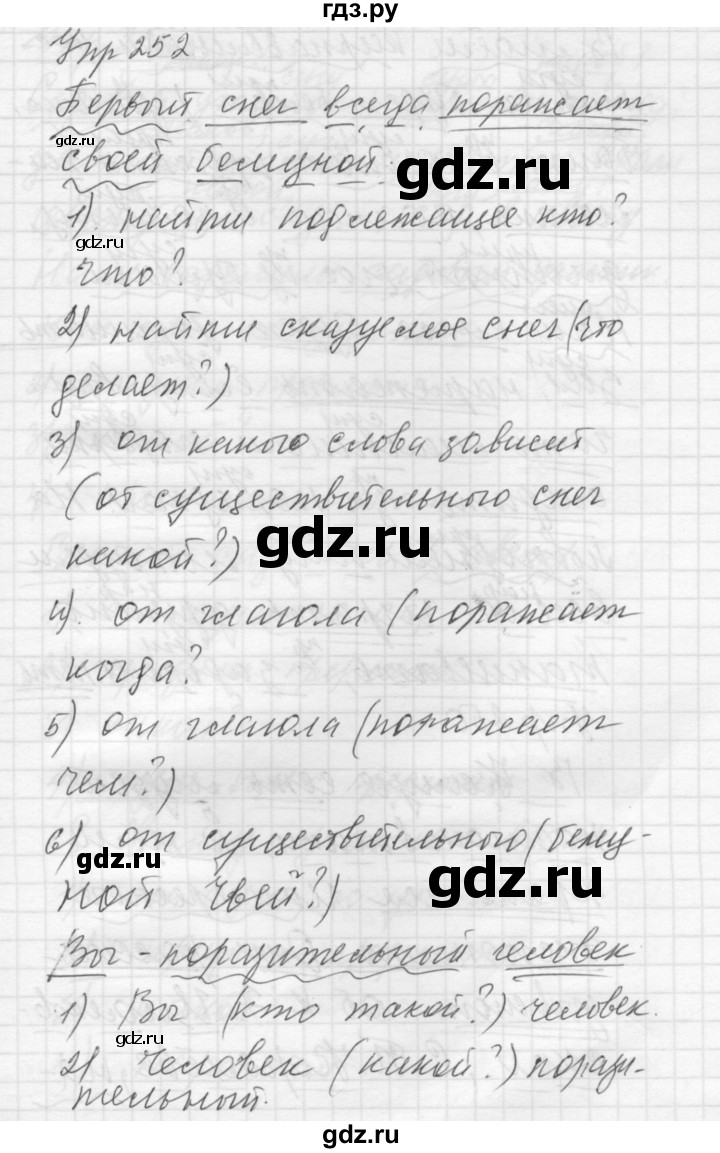 гдз.ру
Упр 252
Первый снег всегда поражает
gdz.ru
своей белизной.
gdz.ru
1) найти подлежащее кто?
gdz.ru
что?
2) найти сказуемое снег (что
делает?)
3) от какого слова зависит
(от существительного снег
какой?)
gdz.ru
4). от глагола (поражает
когда?
5) от глагола (поражает
чем?)
6) от существительного (белиз-
gdz.ru
gdz.ru
ной чьей?)
Вы - поразительный человек
1) Вы (кто такой?) человек.
gdz.ru
2) Человек (какой?) порази-
тельный.
gdz.ru
gdz.ru